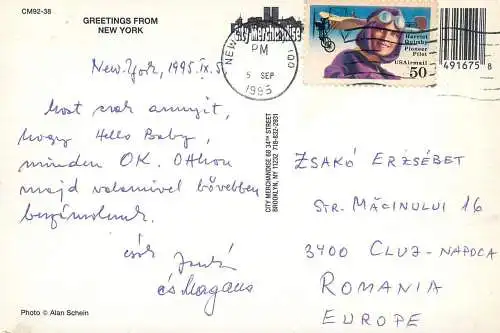 CM92-38
GREETINGS FROM
NEW YORK
City Merchandise
NEW
PM
5 SEP
1995
100
Harriet
Quimby
Pioneer
Pilot
USAirmail
50
491675 8
New-York, 1995.IX.5.
Most csak annyit,
hogy Hello Baby,
minden OK. Otthon
majd valamivel bővebben
beszámolunk.
csók
és Magans
CITY MERCHANDISE 68 34TH STREET
BROOKLYN, NY 11232 718-832-2931
ZSAKÓ ERZSÉBET
STR. MĂCINULUI 16
3400 CLUJ-NAPOCA
ROMANIA
EUROPE
Photo © Alan Schein